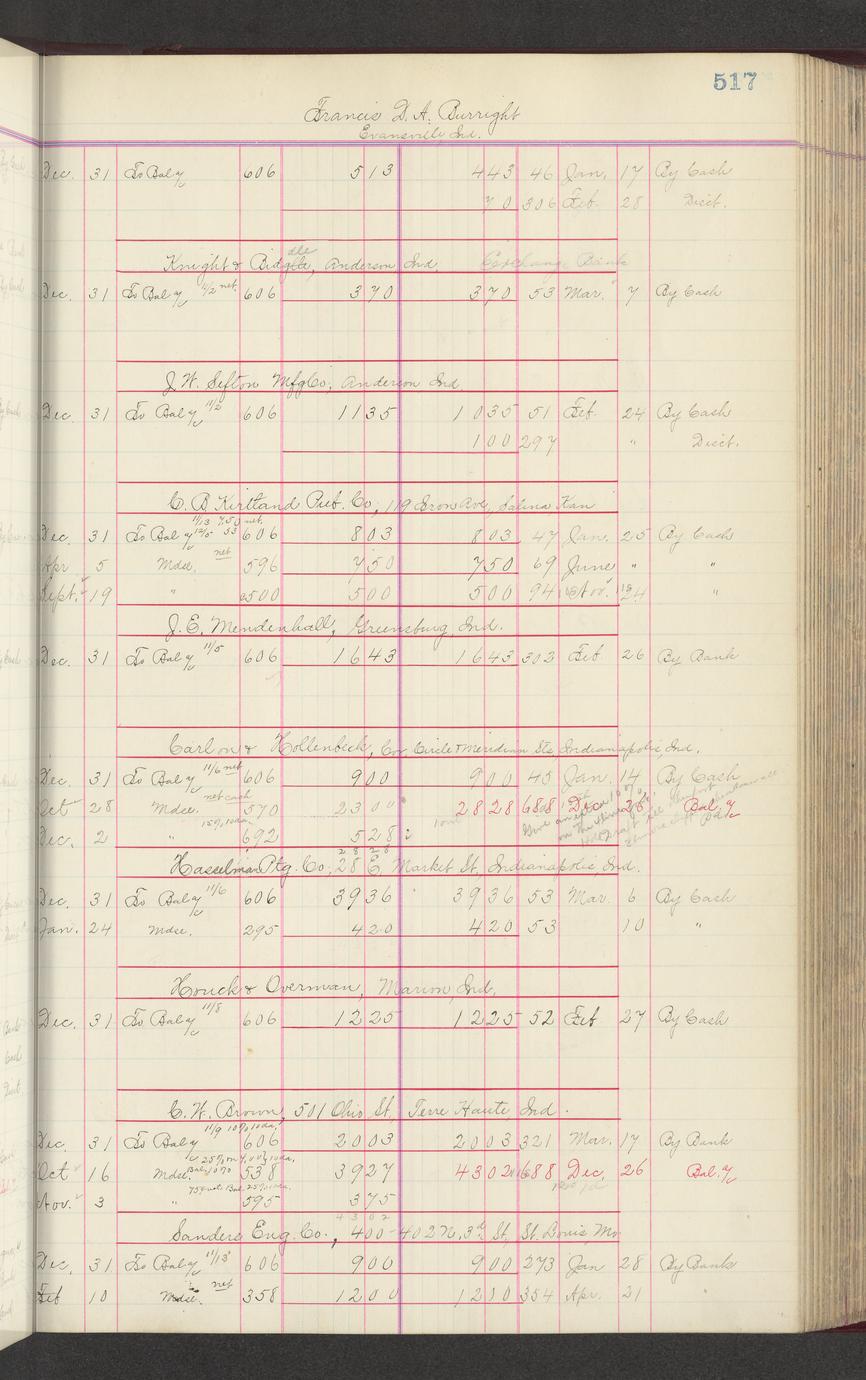 517
Francis D. A. Burright
Evansville Ind.
Dec. 31 To Bal a/c 606 513 443 46 Jan. 17 By Cash
70 306 Feb. 28 Disct.
dle
Knight & Bid, Anderson Ind. Exchange Bank
Dec. 31 To Bal a/c 11/2 net. 606 370 370 53 Mar. 7 By Cash
J. W. Sefton Mfg Co, Anderson Ind.
Dec. 31 To Bal a/c 11/2 606 1135 1035 51 Feb. 24 By Cash
100 297 " Disct.
C. B. Kirtland Pub. Co, 119 Iron Ave, Salina Kan
11/13 7.50 net.
Dec. 31 To Bal a/c 12/5 53 606 803 803 47 Jan. 25 By Cash
Apr 5 Mdse. net 596 750 750 69 June " "
Sept. 19 " 500 500 500 94 Nov. 24 "
J. E. Mendenhall, Greensburg Ind.
Dec. 31 To Bal a/c 11/5 606 1643 1643 302 Feb 26 By Bank
Carlon & Hollenbeck, Cor Circle & Meridian Sts, Indianapolis Ind.
Dec. 31 To Bal a/c 11/6 net 606 900 900 45 Jan. 14 By Cash
Oct 28 Mdse. net cash 570 2300 2828 688 Dec 26 Bal. a/c
Dec. 2 " 15% 10 da. 692 528
2828
Hasselman Ptg. Co, 28 E. Market St, Indianapolis, Ind.
Dec. 31 To Bal a/c 11/6 606 3936 3936 53 Mar. 6 By Cash
Jan. 24 Mdse. 295 420 420 53 10 "
Houck & Overman, Marion, Ind.
Dec. 31 To Bal a/c 11/8 606 1225 1225 52 Feb 27 By Cash
C. W. Brown, 501 Ohio St, Terre Haute Ind.
11/9 10% 10 da.
Dec. 31 To Bal a/c 606 2003 2003 321 Mar. 17 By Bank
Oct 16 Mdse. Bal 10% 538 3927 4302 688 Dec. 26 Bal. a/c
Nov. 3 " 595 375
4302
Sanders Eng. Co., 400-402 N. 3rd St, St. Louis Mo
Dec. 31 To Bal a/c 11/13 606 900 900 273 Jan 28 By Bank
Feb 10 Mdse. net 358 1200 1210 354 Apr. 21